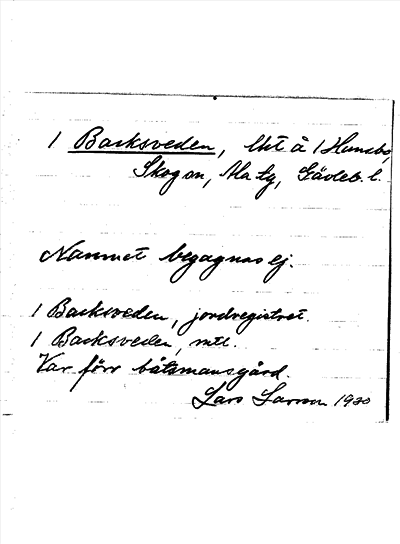 1 Backsveden, lht å 1 Hunsbo,
Skog sn, Ala tg, Gävleb. l.
Namnet begagnas ej.
1 Backsveden, jordregistret.
1 Backsveden, mtl.
Var förr båtsmansgård.
Lars Larson 1930